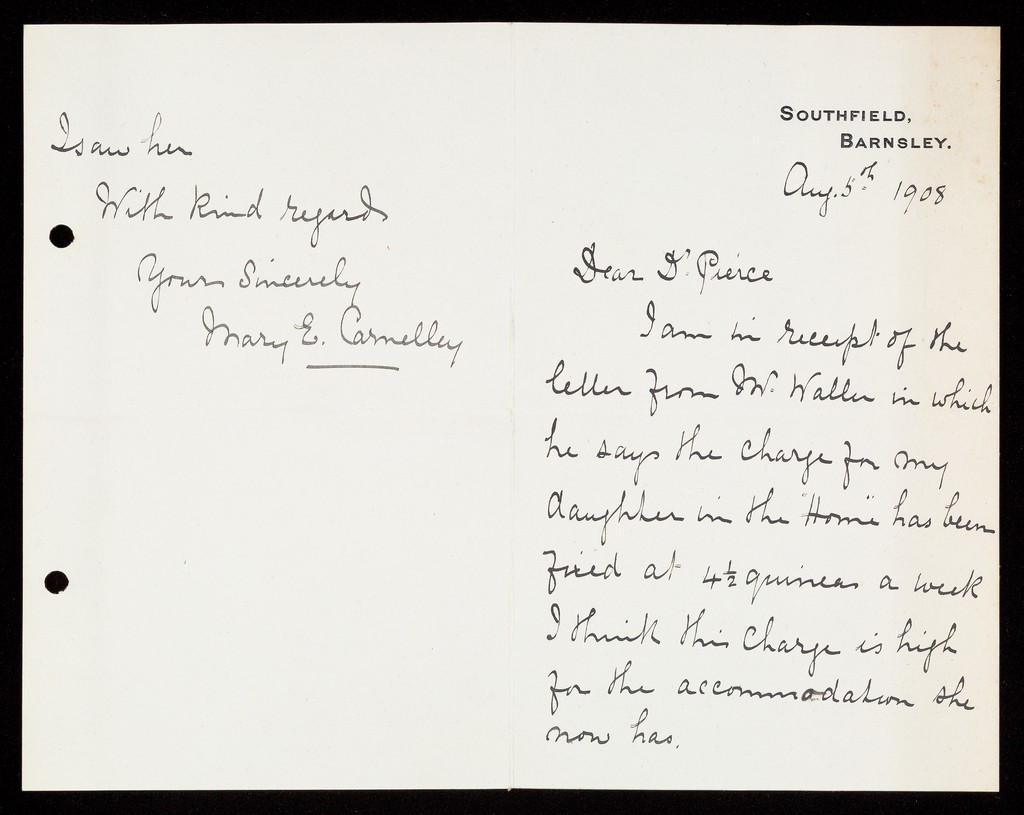 SOUTHFIELD,
BARNSLEY.
Aug. 5th 1908
Dear Dr Pierce
I am in receipt of the
letter from Mr. Waller in which
he says the charge for my
daughter in the "Home" has been
fixed at 4½ guineas a week
I think this charge is high
for the accommodation she
now has.
I saw her
With kind regards
Yours Sincerely
Mary E. Carnelley